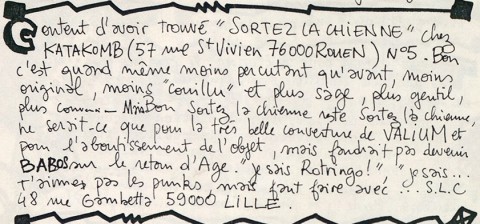 Content d'avoir trouvé "SORTEZ LA CHIENNE" chez
KATAKOMB (57 rue St Vivien 76000 ROUEN) N°5. Bon
c'est quand même moins percutant qu'avant, moins
original, moins "couillu" et plus sage, plus gentil,
plus convenu - Mais Bon Sortez la chienne reste Sortez la chienne,
ne serait-ce que pour la très belle couverture de VALIUM et
pour l'aboutissement de l'objet, mais faudrait pas devenir
BABOS sur le retour d'Age. "je sais Rotringo!" "je sais...
t'aimes pas les punks, mais faut faire avec ... S.L.C
48 rue Gambetta 59000 LILLE.